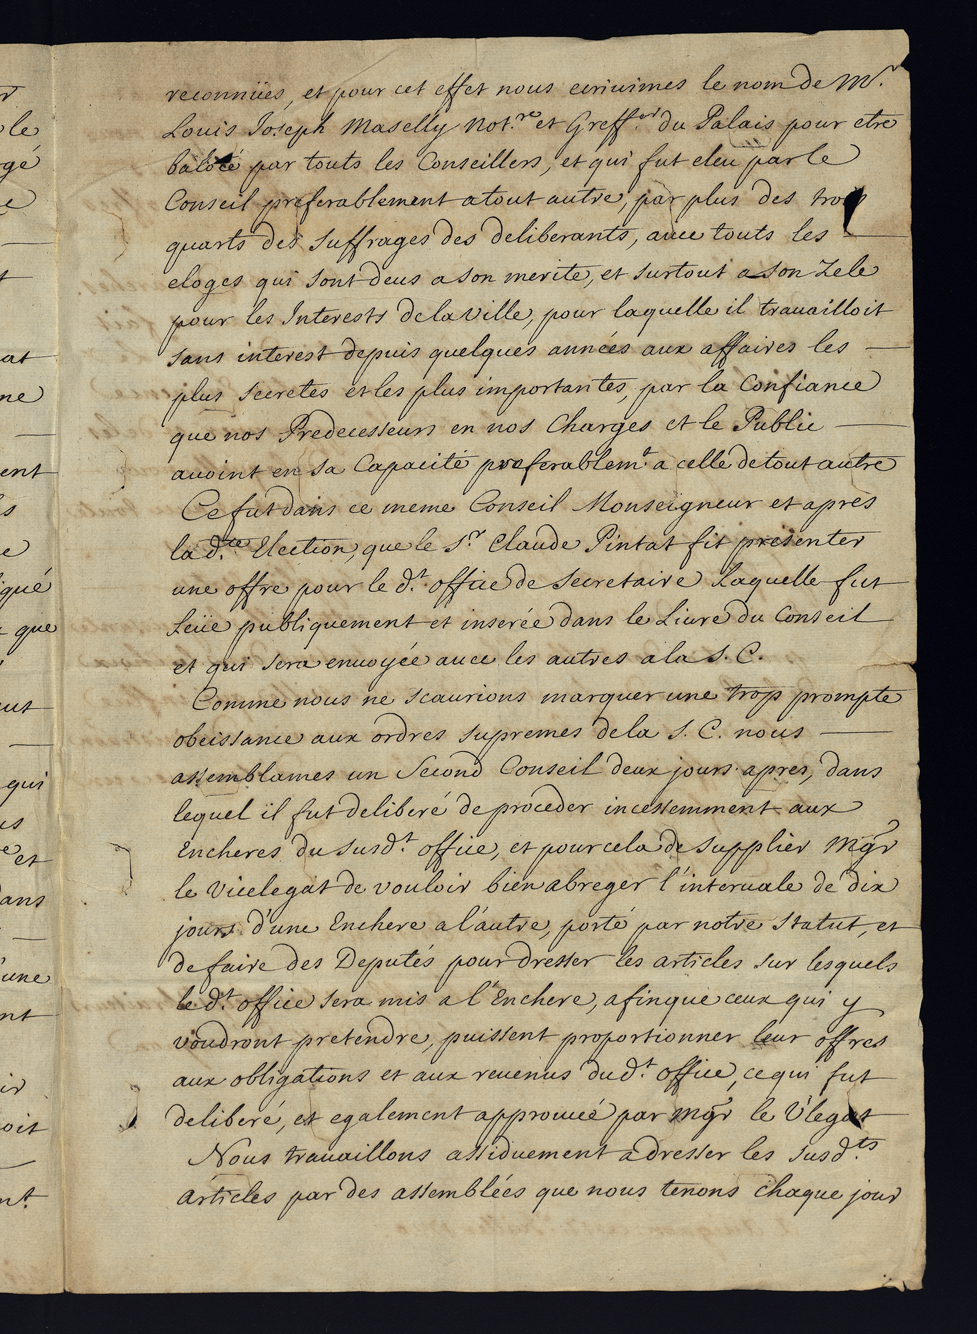 reconnües, et pour cet effet nous ecrivimes le nom de Mr.
Louis Joseph Maselly Not.re et Greff.er du Palais pour etre
baloté par touts les Conseillers, et qui fut eleu par le
Conseil preferablement a tout autre, par plus des trois
quarts des suffrages des deliberants, avec touts les
eloges qui sont deus a son merite, et surtout a son Zele
pour les Interests de la Ville, pour laquelle il travailloit
sans interest depuis quelques années aux affaires les
plus secretes et les plus importantes, par la Confiance
que nos Predecesseurs en nos Charges et le Public
avoint en sa Capacité preferablem.t a celle de tout autre
Ce fut dans ce meme Conseil Monseigneur et apres
la d.te Election, que le S.r Claude Pintat fit presenter
une offre pour le d.t office de secretaire Laquelle fut
Leüe publiquement et inserée dans le Livre du Conseil
et qui sera envoyée avec les autres a la S. C.
Comme nous ne scaurions marquer une trop prompte
obeissance aux ordres supremes de la S. C. nous
assemblames un Second Conseil deux jours apres, dans
lequel il fut deliberé de proceder incessemment aux
Encheres du susd.t office, et pour cela de supplier Mgr
le Vicelegat de vouloir bien abreger l'intervale de dix
jours d'une Enchere a l'autre, porté par notre Statut, et
de faire des Deputés pour dresser les articles sur lesquels
le d.t office sera mis a l'Enchere, afin que ceux qui y
voudront pretendre, puissent proportionner leur offres
aux obligations et aux revenus du d.t office, ce qui fut
deliberé, et egalement approuvée par Mgr le V'legat
Nous travaillons assiduement a dresser les susd.ts
Articles par des assemblées que nous tenons chaque jour